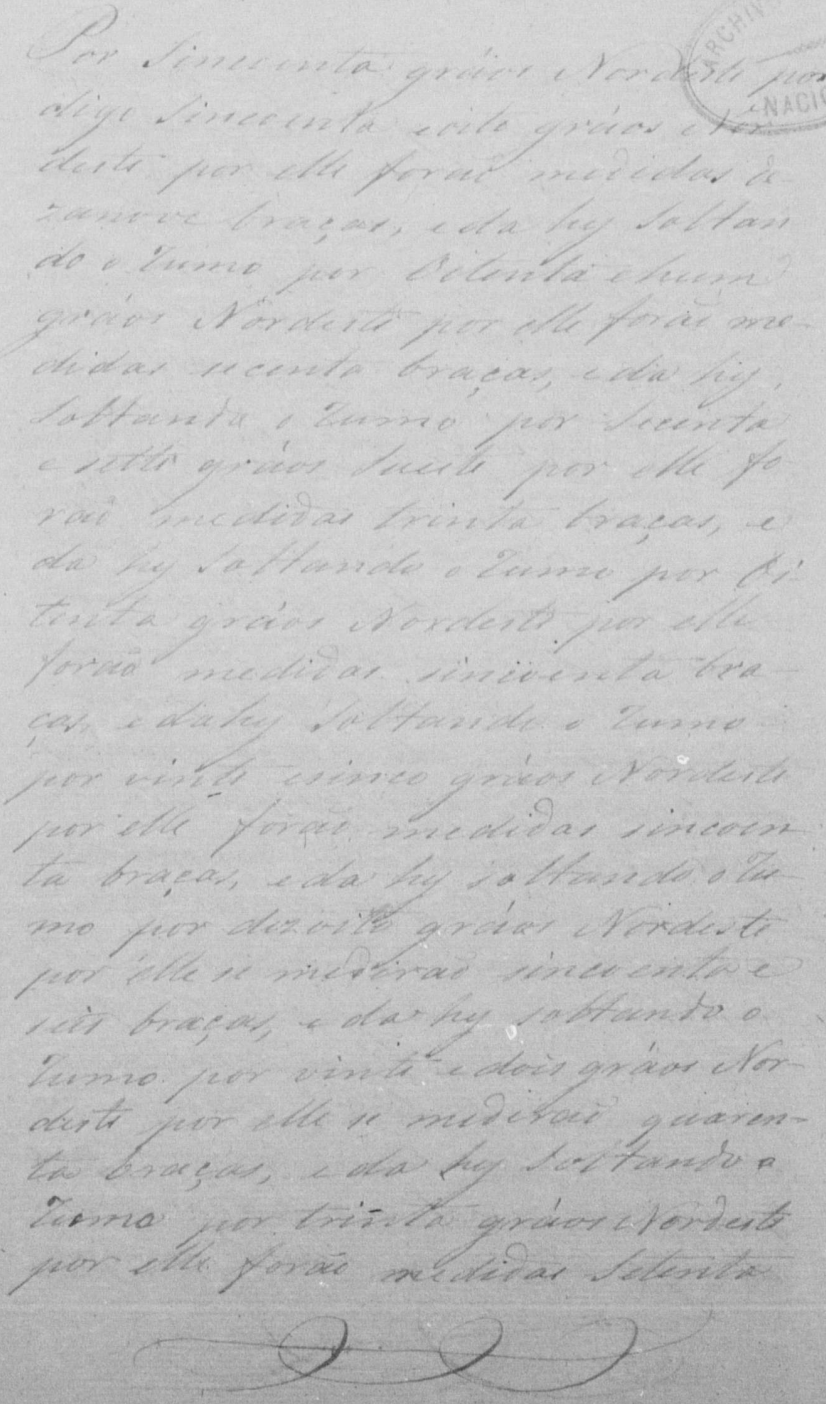 Por Sincoenta gráos Nordeste por
digo Sincoenta eoito gráos Nor
deste por elle forão medidas de
zanove braças, eda hy Soltan
do o Rumo por Oitenta ehum
gráos Nordeste por elle forão me-
didas secenta braças, eda hy
Soltando o Rumo por Secenta
e sette gráos Sueste por elle fo
rão medidas trinta braças, e
da hy Soltando o Rumo por Oi-
tenta gráos Nordeste por elle
forão medidas sincoenta bra-
ças, edahy Soltando o Rumo
por vinte esinco gráos Nordeste
por elle forão medidas sincoen
ta braças, eda hy soltando o Ru-
mo por dezoito gráos Nordeste
por elle se medirão sincoenta e
seis braças, eda hy soltando o
Rumo por vinte edois gráos Nor-
deste por elle se medirão quaren-
ta braças, eda hy Soltando o
Rumo por trinta gráos Nordeste
por elle forão medidas Setenta
ARCHIV
NACIO